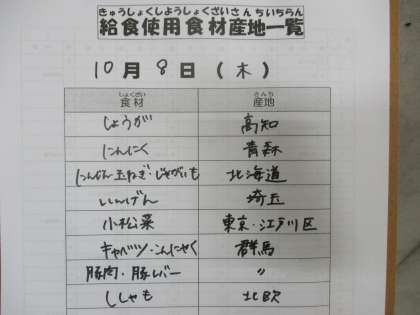 きゅうしょくしようしょくざいさんちいちらん
給食使用食材産地一覧
10月8日(木)
しょくざい さんち
食材 産地
しょうが 高知
にんにく 青森
にんじん・玉ねぎ・じゃがいも 北海道
いんげん 埼玉
小松菜 東京・江戸川区
キャベツ・こんにゃく 群馬
豚肉・豚レバー 〃
ししゃも 北欧